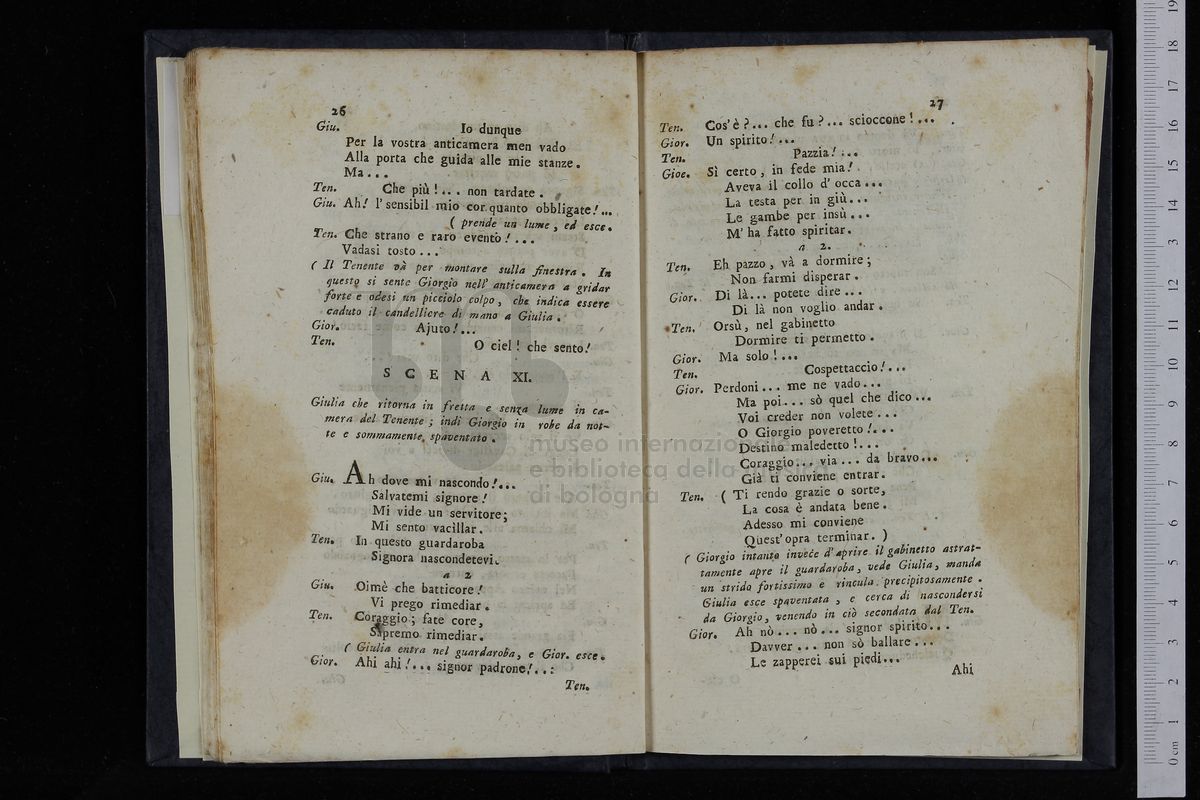 26
Giu. Io dunque
Per la vostra anticamera men vado
Alla porta che guida alle mie stanze.
Ma...
Ten. Che più!... non tardate.
Giu. Ah! l'sensibil mio cor quanto obbligate!...
( prende un lume, ed esce.
Ten. Che strano e raro evento!...
Vadasi tosto...
( Il Tenente và per montare sulla finestra. In
questo si sente Giorgio nell' anticamera a gridar
forte e odesi un picciolo colpo, che indica essere
caduto il candelliere di mano a Giulia.
Gior. Ajuto!...
Ten. O ciel! che sento!
SCENA XI.
Giulia che ritorna in fretta e senza lume in ca-
mera del Tenente; indi Giorgio in robe da not-
te e sommamente spaventato.
Giu. Ah dove mi nascondo!...
Salvatemi signore!
Mi vide un servitore;
Mi sento vacillar.
Ten. In questo guardaroba
Signora nascondetevi.
a 2
Giu. Oimè che batticore!
Vi prego rimediar.
Ten. Coraggio; fate core,
Sapremo rimediar.
( Giulia entra nel guardaroba, e Gior. esce.
Gior. Ahi ahi!... signor padrone!..:
Ten.
27
Ten. Cos'è?... che fu?... scioccone!...
Gior. Un spirito!...
Ten. Pazzia!...
Gioe. Sì certo, in fede mia!
Aveva il collo d'occa...
La testa per in giù...
Le gambe per insù...
M'ha fatto spiritar.
a 2.
Ten. Eh pazzo, và a dormire;
Non farmi disperar.
Gior. Di là... potete dire...
Di là non voglio andar.
Ten. Orsù, nel gabinetto
Dormire ti permetto.
Gior. Ma solo!...
Ten. Cospettaccio!...
Gior. Perdoni... me ne vado...
Ma poi... sò quel che dico...
Voi creder non volete...
O Giorgio poveretto!...
Destino maledetto!...
Coraggio... via... da bravo...
Già ti conviene entrar.
Ten. ( Ti rendo grazie o sorte,
La cosa è andata bene.
Adesso mi conviene
Quest'opra terminar. )
( Giorgio intanto invece d'aprire il gabinetto astrat-
tamente apre il guardaroba, vede Giulia, manda
un strido fortissimo e rincula precipitosamente.
Giulia esce spaventata, e cerca di nascondersi
da Giorgio, venendo in ciò secondata dal Ten.
Gior. Ah nò... nò... signor spirito...
Davver... non sò ballare...
Le zapperei sui piedi...
Ahi
museo internazionale
e biblioteca della musica
di bologna
0 cm 1 2 3 4 5 6 7 8 9 10 11 12 13 14 15 16 17 18 19